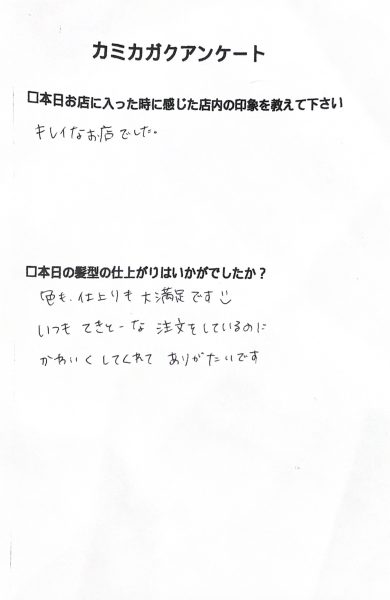 カミカガクアンケート
□本日お店に入った時に感じた店内の印象を教えて下さい
キレイなお店でした。
□本日の髪型の仕上がりはいかがでしたか？
色も、仕上りも大満足です☺
いつも てきとーな 注文をしているのに
かわいくしてくれて ありがたいです